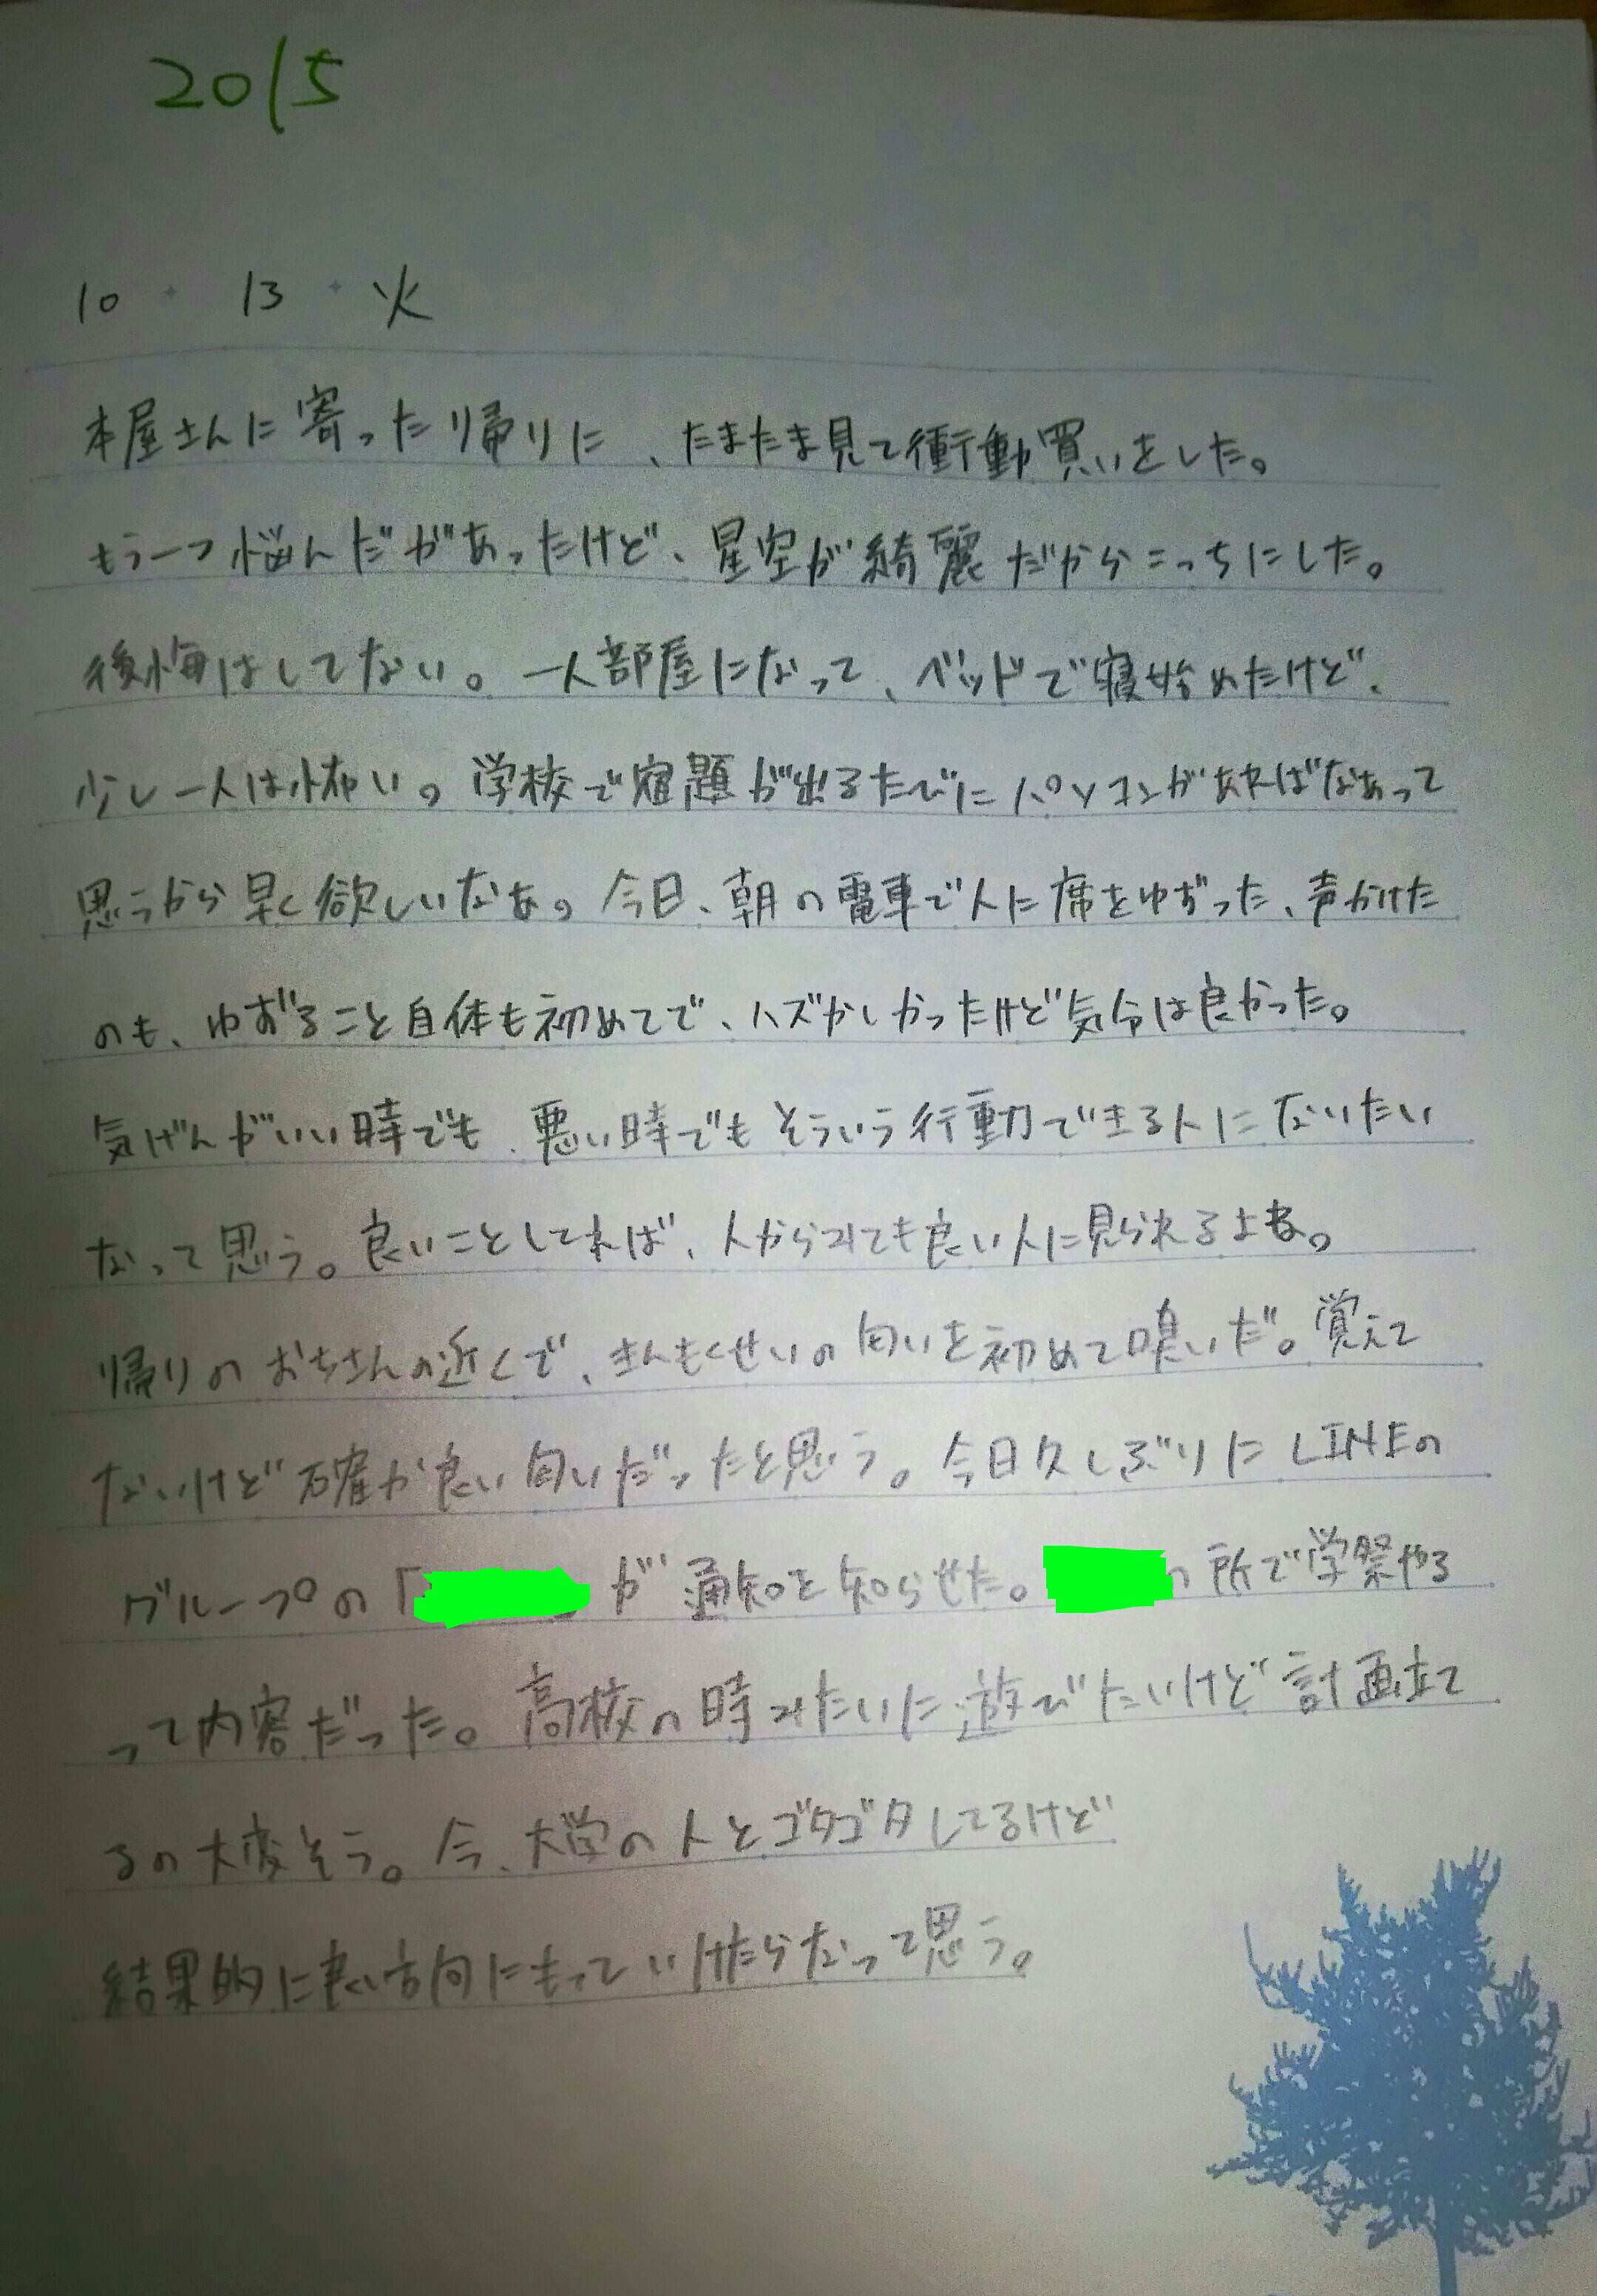 2015
10 ・ 13 ・ 火
本屋さんに寄ったり帰りに、たまたま見て衝動買いをした。
もう一つ悩んだがあったけど、星空が綺麗だからこっちにした。
後悔はしてない。一人部屋になって、ベッドで寝始めたけど、
少し一人は怖い。学校で宿題が出るたびにパソコンがあればなあって
思うから早く欲しいなあ。今日、朝の電車で人に席をゆずった、声かけた
のも、ゆずること自体も初めてで、ハズかしかったけど気分は良かった。
気げんがいい時でも、悪い時でもそういう行動できる人にないたい
なって思う。良いことしてれば、人からみても良い人に見られるよね。
帰りのおちさんの近くで、きんもくせいの匂いを初めて嗅いだ。覚えて
ないけど確か良い匂いだったと思う。今日久しぶりにLINEの
グループの「 」が通知を知らせた。 の所で学祭やる
って内容だった。高校の時みたいに遊びたいけど計画立て
るの大変そう。今、大学の人とゴタゴタしてるけど
結果的に良い方向にもっていけたらなって思う。